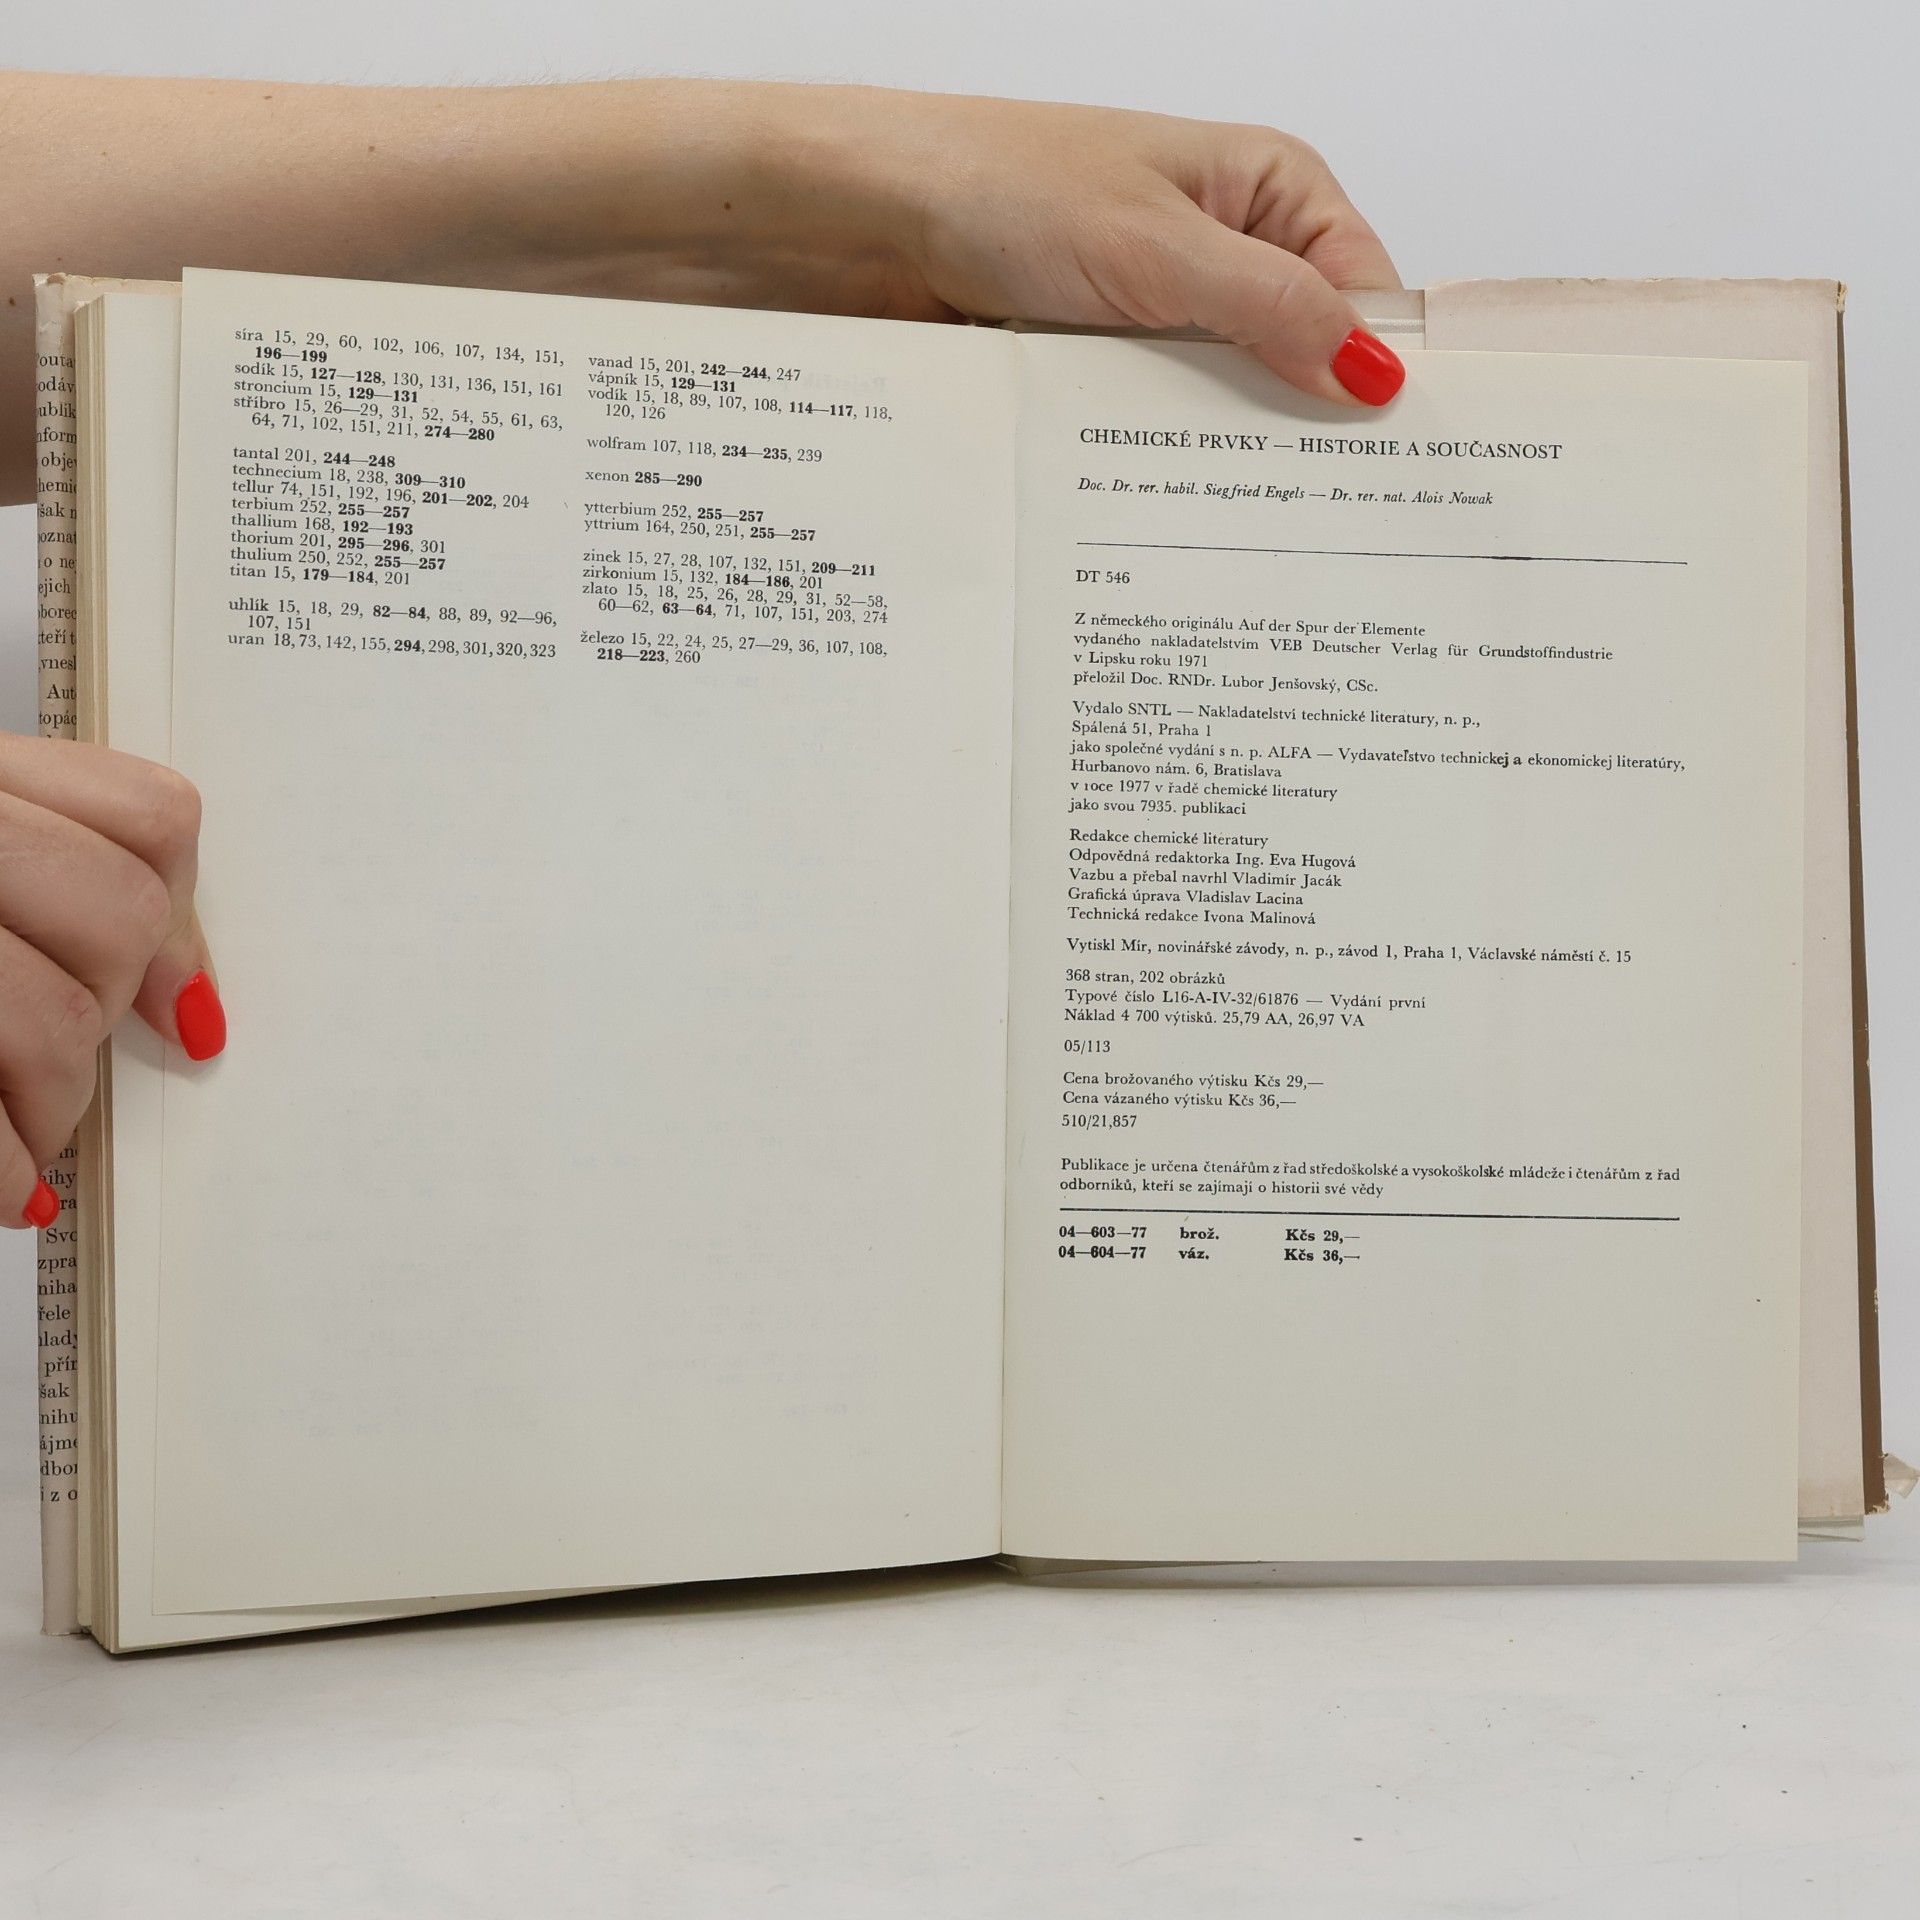 síra 15, 29, 60, 102, 106, 107, 134, 151,
196—199
sodík 15, 127—128, 130, 131, 136, 151, 161
stroncium 15, 129—131
stříbro 15, 26—29, 31, 52, 54, 55, 61, 63,
64, 71, 102, 151, 211, 274—280
tantal 201, 244—248
technecium 18, 238, 309—310
tellur 74, 151, 192, 196, 201—202, 204
terbium 252, 255—257
thallium 168, 192—193
thorium 201, 295—296, 301
thulium 250, 252, 255—257
titan 15, 179—184, 201
uhlík 15, 18, 29, 82—84, 88, 89, 92—96,
107, 151
uran 18, 73, 142, 155, 294, 298, 301, 320, 323
vanad 15, 201, 242—244, 247
vápník 15, 129—131
vodík 15, 18, 89, 107, 108, 114—117, 118,
120, 126
wolfram 107, 118, 234—235, 239
xenon 285—290
ytterbium 252, 255—257
yttrium 164, 250, 251, 255—257
zinek 15, 27, 28, 107, 132, 151, 209—211
zirkonium 15, 132, 184—186, 201
zlato 15, 18, 25, 26, 28, 29, 31, 52—58,
60—62, 63—64, 71, 107, 151, 203, 274
železo 15, 22, 24, 25, 27—29, 36, 107, 108,
218—223, 260
CHEMICKÉ PRVKY — HISTORIE A SOUČASNOST
Doc. Dr. rer. habil. Siegfried Engels — Dr. rer. nat. Alois Nowak
DT 546
Z německého originálu Auf der Spur der Elemente
vydaného nakladatelstvím VEB Deutscher Verlag für Grundstoffindustrie
v Lipsku roku 1971
přeložil Doc. RNDr. Lubor Jenšovský, CSc.
Vydalo SNTL — Nakladatelství technické literatury, n. p.,
Spálená 51, Praha 1
jako společné vydání s n. p. ALFA — Vydavateľstvo technickej a ekonomickej literatúry,
Hurbanovo nám. 6, Bratislava
v roce 1977 v řadě chemické literatury
jako svou 7935. publikaci
Redakce chemické literatury
Odpovědná redaktorka Ing. Eva Hugová
Vazbu a přebal navrhl Vladimír Jacák
Grafická úprava Vladislav Lacina
Technická redakce Ivona Malinová
Vytiskl Mír, novinářské závody, n. p., závod 1, Praha 1, Václavské náměstí č. 15
368 stran, 202 obrázků
Typové číslo L16-A-IV-32/61876 — Vydání první
Náklad 4 700 výtisků. 25,79 AA, 26,97 VA
05/113
Cena brožovaného výtisku Kčs 29,—
Cena vázaného výtisku Kčs 36,—
510/21,857
Publikace je určena čtenářům z řad středoškolské a vysokoškolské mládeže i čtenářům z řad
odborníků, kteří se zajímají o historii své vědy
04—603—77 brož. Kčs 29,—
04—604—77 váz. Kčs 36,—